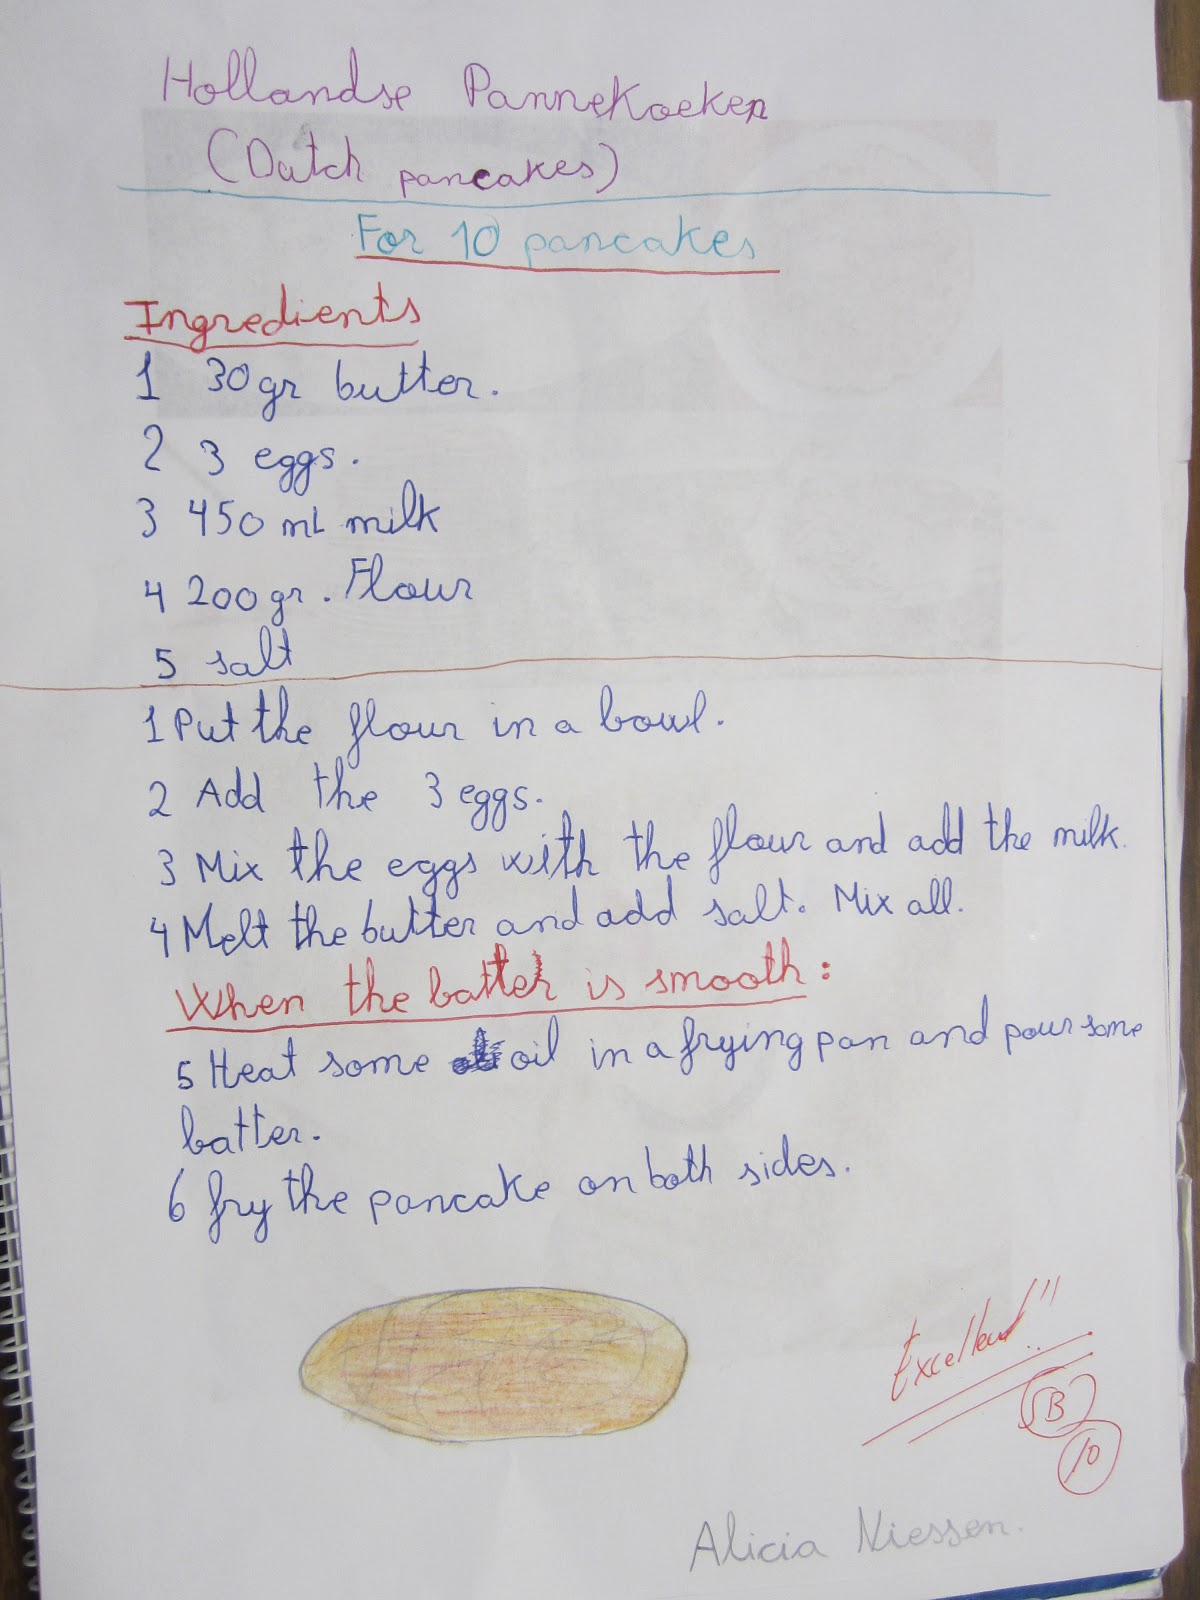 Hollandse Pannekoeken
(Dutch pancakes)
For 10 pancakes
Ingredients
1 30gr butter.
2 3 eggs.
3 450 mL milk
4 200gr. Flour
5 salt
1 Put the flour in a bowl.
2 Add the 3 eggs.
3 Mix the eggs with the flour and add the milk.
4 Melt the butter and add salt. Mix all.
When the batter is smooth:
5 Heat some oil in a frying pan and pour some
batter.
6 fry the pancake on both sides.
Excellent!!
B
10
Alicia Niessen.